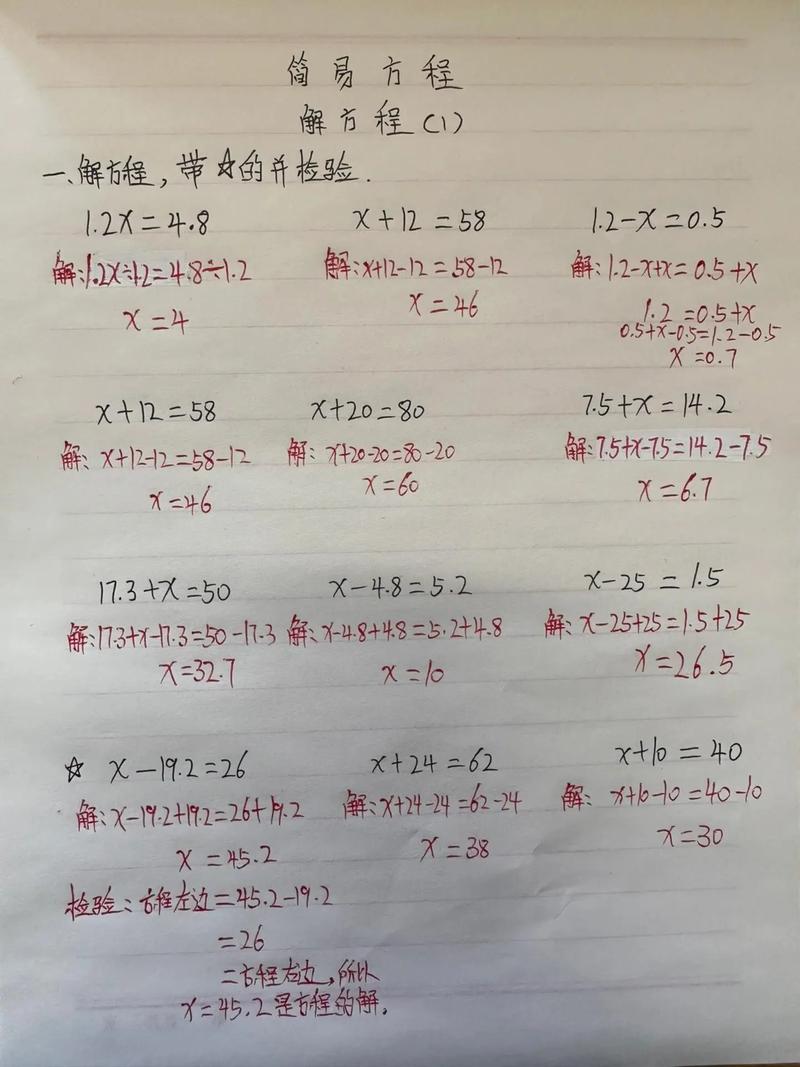 简易方程
解方程(1)
一、解方程，带☆的并检验.
1.2x=4.8 x+12=58 1.2-x=0.5
解:1.2x÷1.2=4.8÷1.2 解:x+12-12=58-12 解:1.2-x+x=0.5+x
x=4 x=46 1.2=0.5+x
0.5+x-0.5=1.2-0.5
x=0.7
x+12=58 x+20=80 7.5+x=14.2
解: x+12-12=58-12 解: x+20-20=80-20 解:7.5+x-7.5=14.2-7.5
x=46 x=60 x=6.7
17.3+x=50 x-4.8=5.2 x-25=1.5
解:17.3+x-17.3=50-17.3 解:x-4.8+4.8=5.2+4.8 解: x-25+25=1.5+25
x=32.7 x=10 x=26.5
☆ x-19.2=26 x+24=62 x+10=40
解:x-19.2+19.2=26+19.2 解:x+24-24=62-24 解: x+10-10=40-10
x=45.2 x=38 x=30
检验:方程左边=45.2-19.2
=26
=方程右边,所以
x=45.2是方程的解。